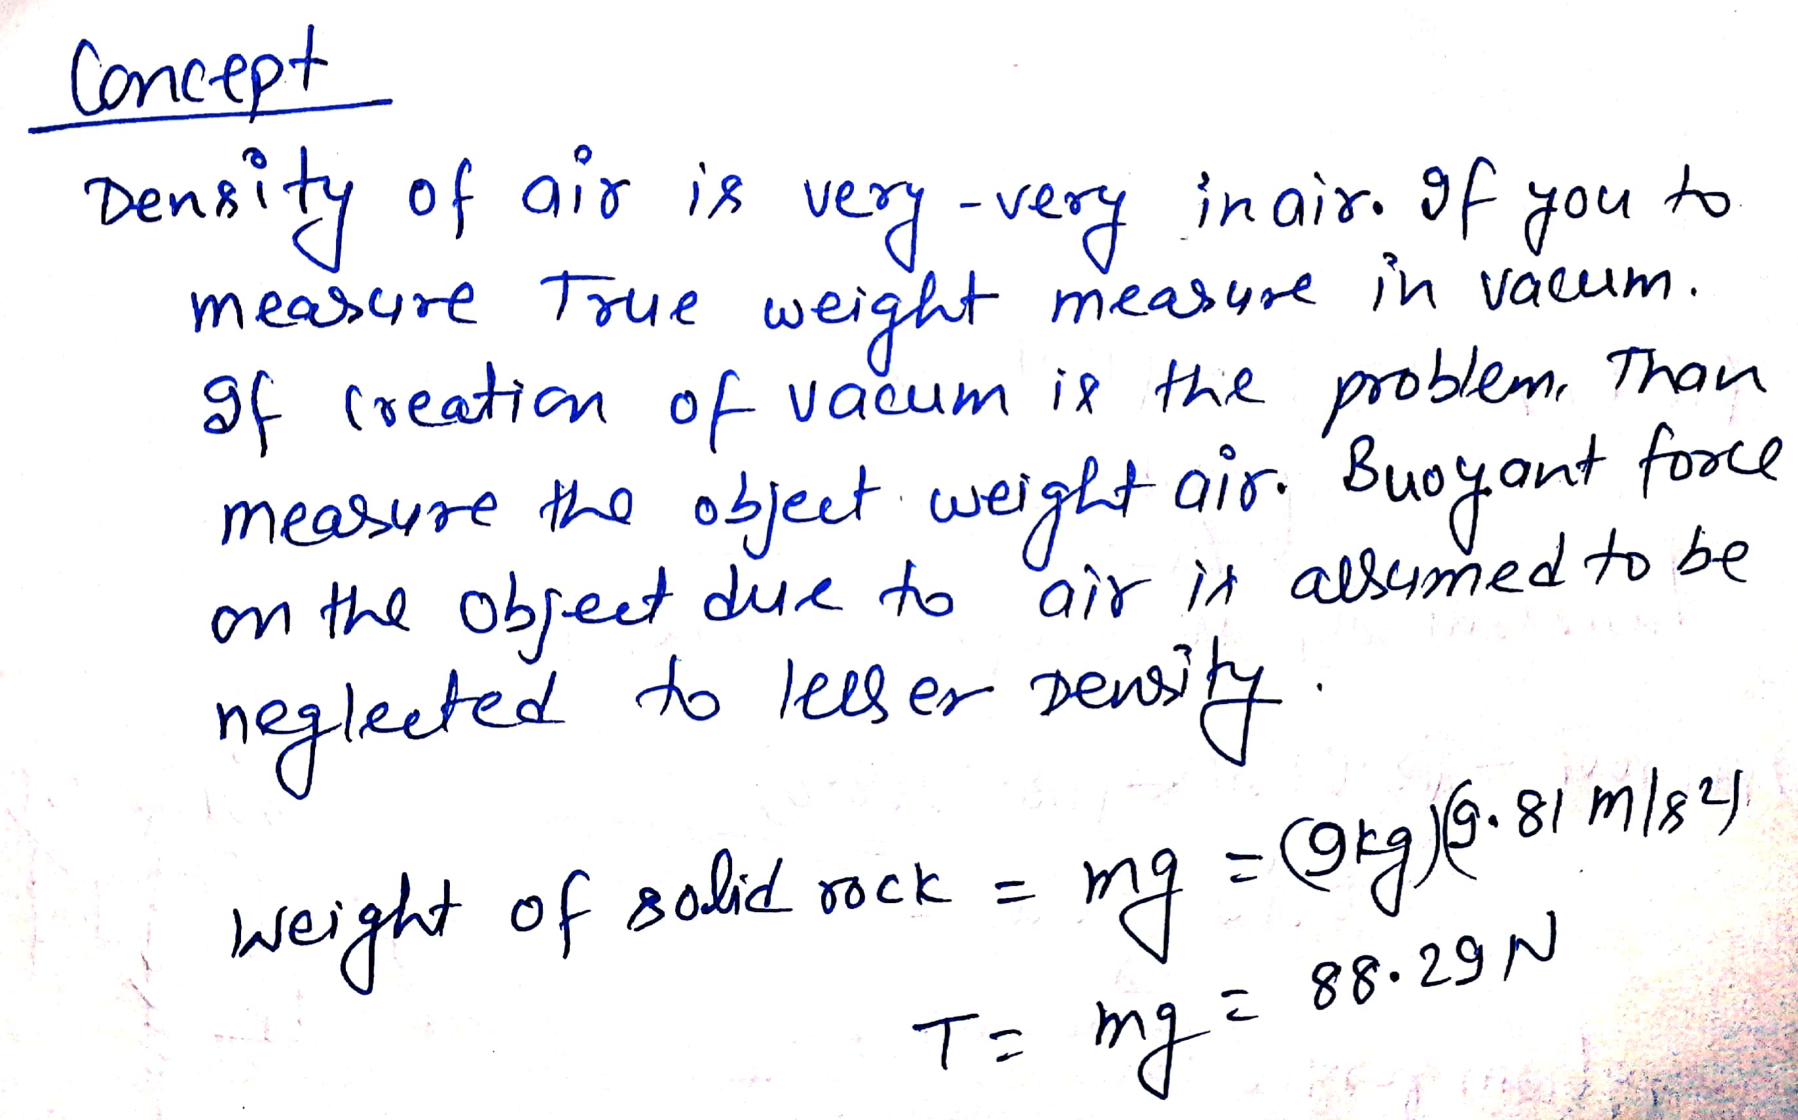 Concept
Density of air is very-very in air. If you to
measure True weight measure in vacum.
If creation of vacum is the problem, Than
measure the object weight air. Buoyant force
on the object due to air is assumed to be
neglected to lesser Density.
Weight of solid rock = mg = (9kg)(9.81 m/s²)
T = mg = 88.29 N